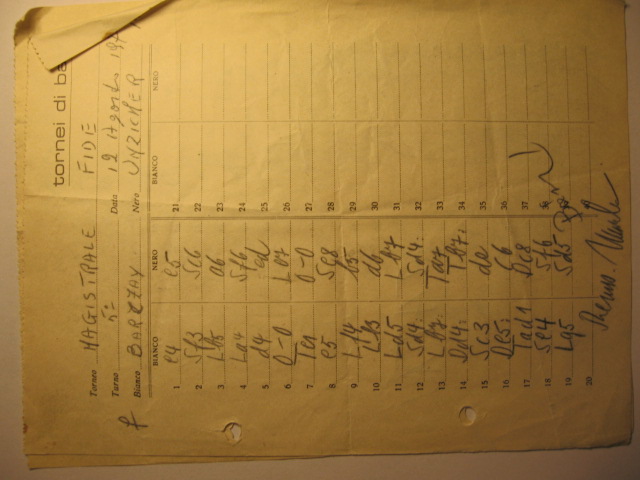 tornei di ba
Torneo MAGISTRALE FIDE
Turno 5° Data 12 Agosto 197
Bianco BARCZAY Nero UNZICKER
BIANCO NERO BIANCO NERO
1 e4 e5 21
2 Sf3 Sc6 22
3 Lb5 a6 23
4 La4 Sf6 24
5 d4 ed 25
6 0-0 Le7 26
7 Te1 0-0 27
8 e5 Se8 28
9 Lf4 b5 29
10 Lb3 d6 30
11 Ld5 Lb7 31
12 Sd4: Sd4: 32
13 Lb7: Ta7 33
14 Dd4: Tb7: 34
15 Sc3 de 35
16 De5: c6 36
17 Tad1 Dc8 37
18 Se4 Sf6 38
19 Lg5 Sd5 39
20
Remis.